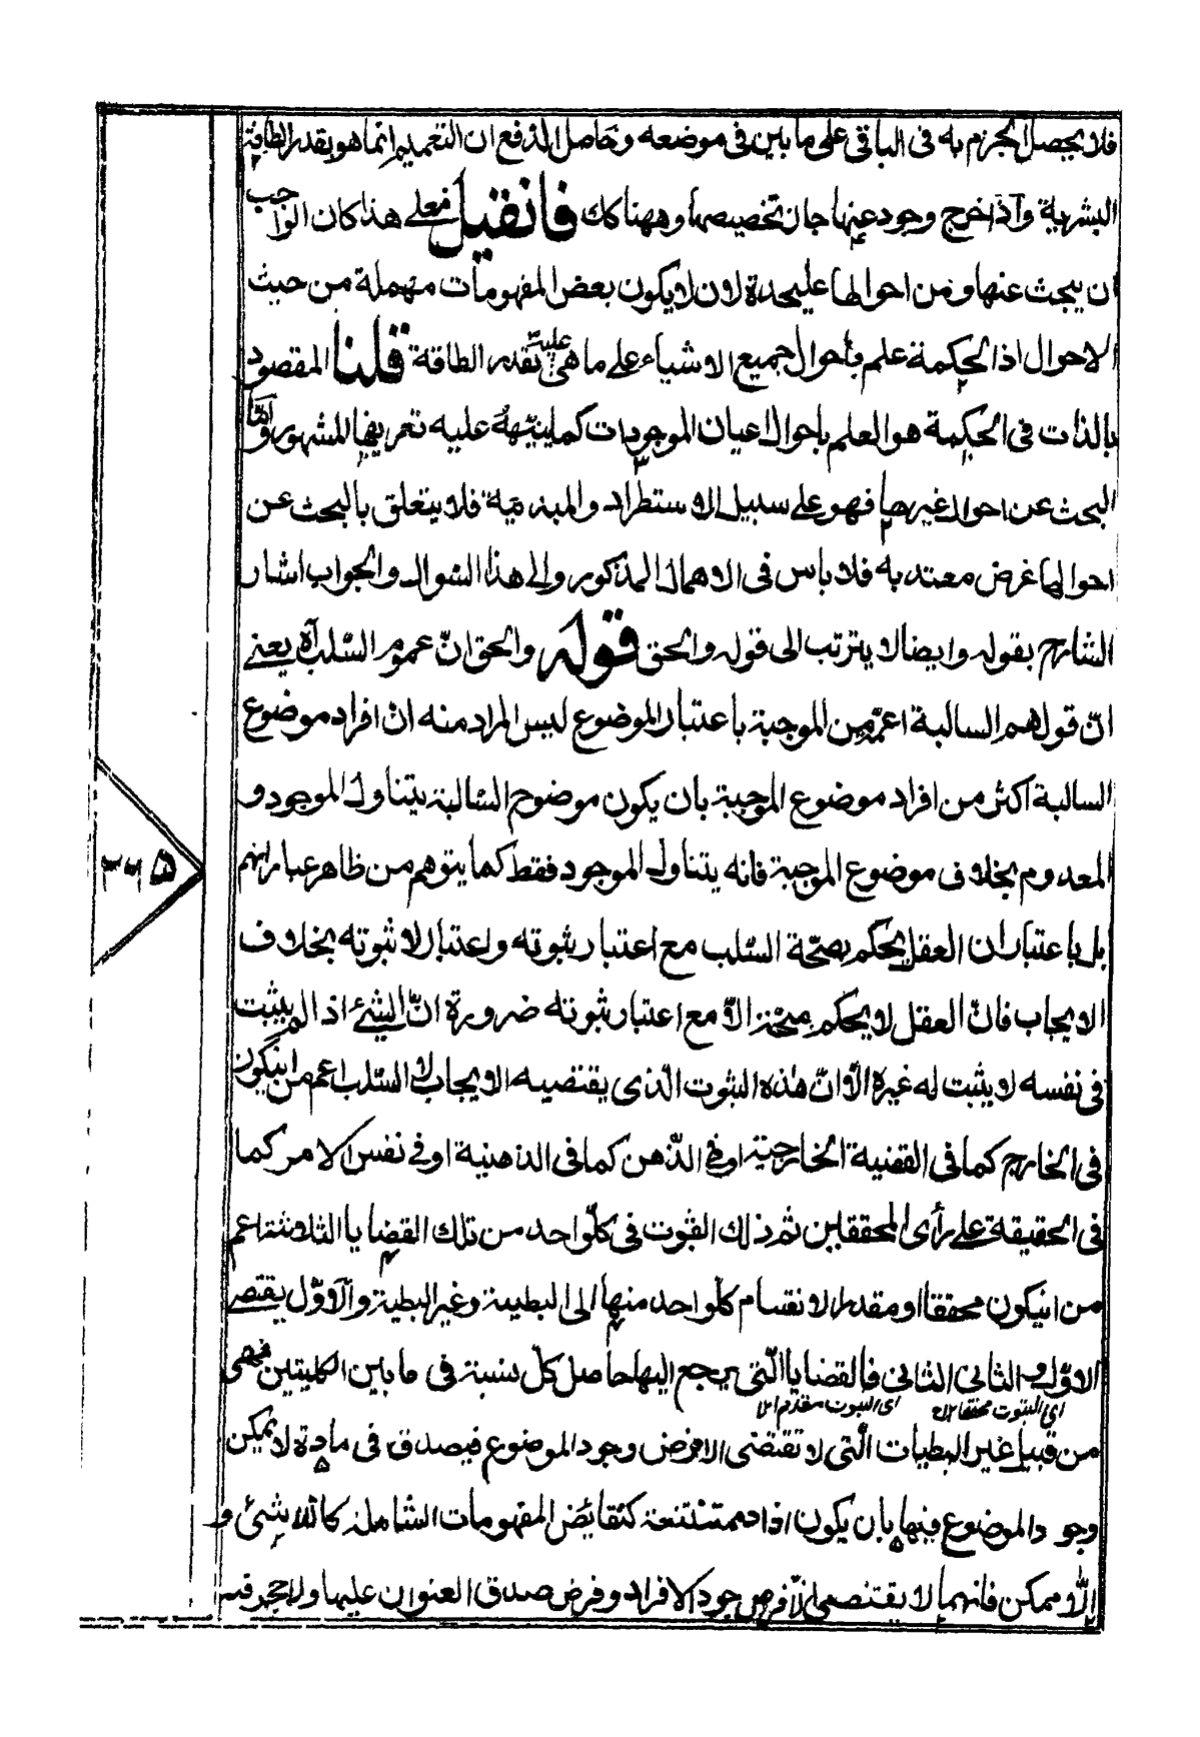 فلا يحصل الجزم به فى الباقى على ما بين فى موضعه وحاصل الدفع ان التعميم انما هو بقدر الطاقة
البشرية وآذا خرج وجود عنها جاز تخصيصها وههنا كك فانقيل فعلے هذا كان الواجب
ان يبحث عنها ومن احوالها عليحدة لان لا يكون بعض المفهومات مهملة من حيث
الاحوال اذ الحكمة علم باحوال جميع الاشياء على ما هى عليه بقدر الطاقة قلنا المقصود
بالذات فى الحكمة هو العلم باحوال اعيان الموجودات كما ينبّهه عليه تعريفها المشهور وآمّا
البحث عن احوال غيرها فهو على سبيل الاستطراد والمبدئية فلا يتعلق بالبحث عن
احوالها غرض معتد به فلا باس فى الاهمال المذكور والى هذا السّوال والجواب اشار
الشارح بقوله وايضا لا يترتب الى قوله والحق قوله والحق انّ عموم السّلب آه يعنے
انّ قولهم السالبة اعمّ من الموجبة باعتبار الموضوع ليس المراد منه انّ افراد موضوع
السالبة اكثر من افراد موضوع الموجبة بان يكون موضوع السّالبة يتناول الموجود و
المعدوم بخلاف موضوع الموجبة فانه يتناول الموجود فقط كما يتوهم من ظاهر عباراتهم
بل باعتبار ان العقل يحكم بصحّة السّلب مع اعتبار ثبوته واعتبار لا ثبوته بخلاف
الايجاب فانّ العقل لا يحكم بصحّته الاّ مع اعتبار ثبوته ضرورة انّ الشئ اذا لم يثبت
فى نفسه لا يثبت له غيره الاّ انّ هذه الثبوت الّذى يقتضيه الايجاب لا السّلب اعم من ان يكون
فى الخارج كما فى القضية الخارجية او فى الذّهن كما فى الذهنية او فى نفس الامر كما
فى الحقيقة على رأى المحققين ثم ذلك الثبوت فى كلّ واحد من تلك القضايا الثلاثة اعم
من انيكون محققا او مقدرا لانقسام كل واحد منها الى البتية وغير البتية والاوّل يقتضے
الاوّل والثانى الثانى فالقضايا الّتى يرجع اليها حاصل كل نسبة فى ما بين الكليتين فهى
اى الثبوت محققا اى الثبوت مقدرا
من قبيل غير البتيات الّتى لا تقتضى الا فرض وجود الموضوع فيصدق فى مادة لا يمكن
وجود الموضوع فيها بان يكون افراده ممتنعة كنقائض المفهومات الشاملة كاللاشئ و
اللّا ممكن فانهما لا يقتضى الّا فرض وجود الافراد وفرض صدق العنوان عليها ولا حجر فيه
۳۶۵